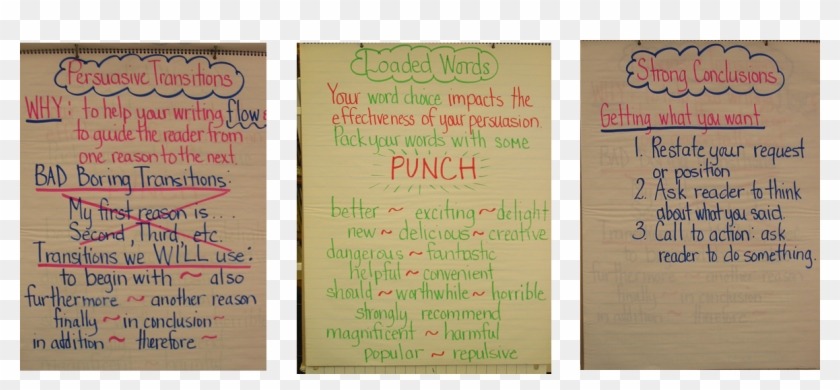 Persuasive Transitions
WHY: to help your writing flow
to guide the reader from
one reason to the next.
BAD Boring Transitions:
My first reason is...
Second, Third, etc.
Transitions we WILL use:
to begin with ~ also
furthermore ~ another reason
finally ~ in conclusion ~
in addition ~ therefore ~
Loaded Words
Your word choice impacts the
effectiveness of your persuasion.
Pack your words with some
PUNCH
better ~ exciting ~ delight
new ~ delicious ~ creative
dangerous ~ fantastic
helpful ~ convenient
should ~ worthwhile ~ horrible
strongly recommend
magnificent ~ harmful
popular ~ repulsive
Strong Conclusions
Getting what you want
1. Restate your request
or position
2. Ask reader to think
about what you said.
3. Call to action: ask
reader to do something.